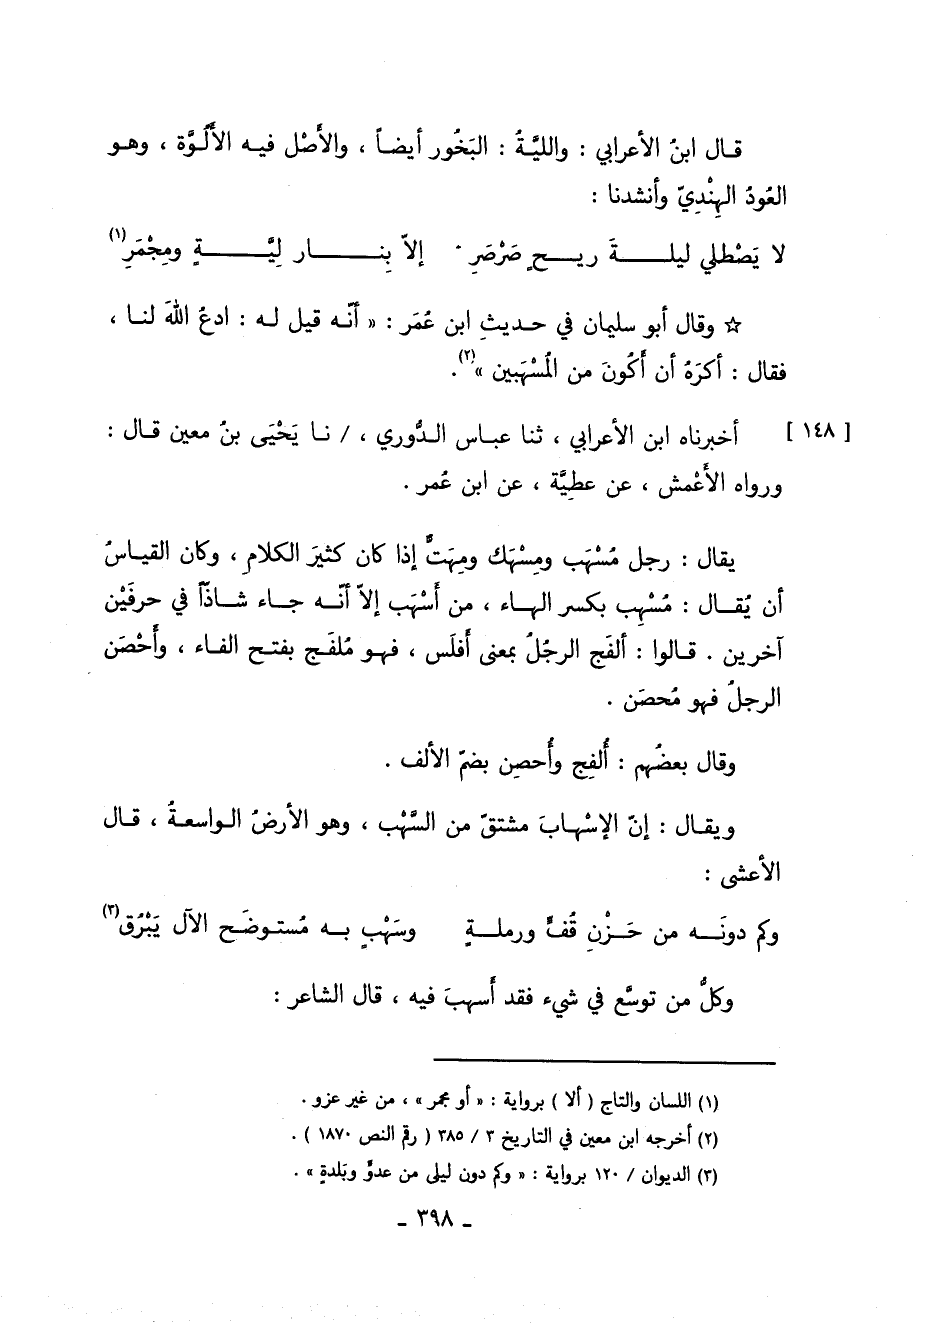 قال ابنُ الأعرابي : واللِّيَّةُ : البَخُور أيضاً ، والأَصْل فيه الأَلُوَّة ، وهو
العُودُ الهِنْدِيّ وأنشدنا :
لا يَصْطلي ليلـةَ ريـحٍ صَرْصَرِ إلاّ بِنـار لِيَّـةٍ ومِجْمَرِ(١)
☆ وقال أبو سليمان في حديثِ ابن عُمَر : « أنّه قيل له : ادعُ اللهَ لنا ،
فقال : أكرَهُ أن أَكُونَ من المُسْهَبين »(٢).
[ ١٤٨ ] أخبرناه ابن الأعرابي ، ثنا عباس الدُّوري ، / نا يَحْيَى بنُ معين قال :
ورواه الأَعْمش ، عن عطِيَّة ، عن ابن عُمر .
يقال : رجل مُسْهَب ومِسْهَك ومِهَتٌّ إذا كان كثيرَ الكلامِ ، وكان القياسُ
أن يُقال : مُسْهِب بكسر الهاء ، من أَسْهَب إلاّ أنّه جاء شاذّاً في حرفَيْن
آخرين . قالوا : ألفَج الرجُلُ بمعنى أَفلَس ، فهو مُلفَج بفتح الفاء ، وأَحْصَن
الرجلُ فهو مُحصَن .
وقال بعضُهم : أُلفِج وأُحصِن بضمّ الألف .
ويقال : إنّ الإسْهابَ مشتقّ من السَّهْب ، وهو الأرضُ الواسعةُ ، قال
الأعشى :
وكم دونَـه من حَـزْنِ قُفٍّ ورملـةٍ وسَهْبٍ بـه مُستوضَح الآل يَبْرُق(٣)
وكلُّ من توسَّع في شيء فقد أَسهبَ فيه ، قال الشاعر :
(١) اللسان والتاج ( ألا ) برواية : « أو مجمر » ، من غير عزو .
(٢) أخرجه ابن معين في التاريخ ٣ / ٣٨٥ ( رقم النص ١٨٧٠ ) .
(٣) الديوان / ١٢٠ برواية : « وكم دون ليلى من عدوٍّ وبَلدةٍ » .
ـ ٣٩٨ ـ